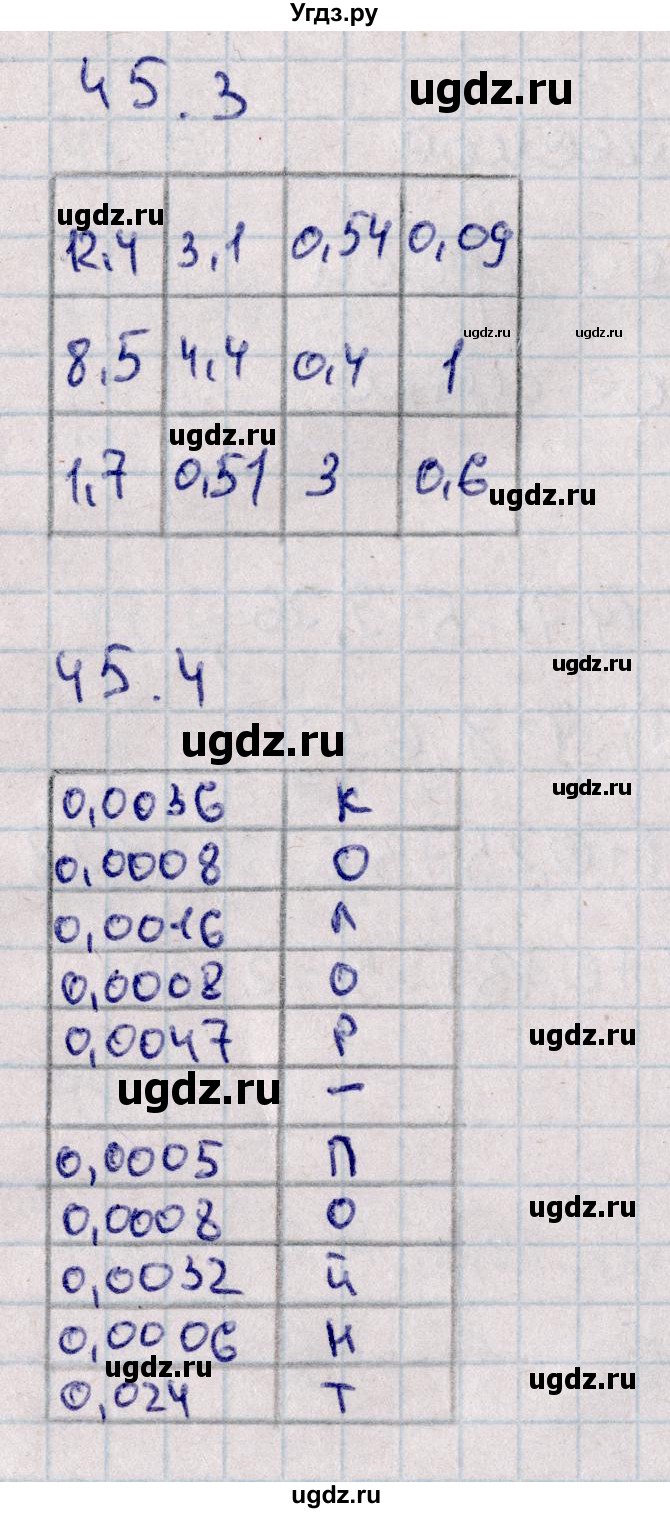 Угдз.ру
45.3
ugdz.ru
ugdz.ru
12,4 3,1 0,54 0,09
ugdz.ru ugdz.ru
8,5 4,4 0,4 1
ugdz.ru
1,7 0,51 3 0,6
ugdz.ru
45.4
ugdz.ru
ugdz.ru
ugdz.ru
0,0036 К
0,0008 О
0,0016 Л
0,0008 О
0,0047 Р
ugdz.ru
ugdz.ru —
0,0005 П
0,0008 О
ugdz.ru
0,0032 Й
0,0006 Н
ugdz.ru
ugdz.ru
0,024 Т
ugdz.ru